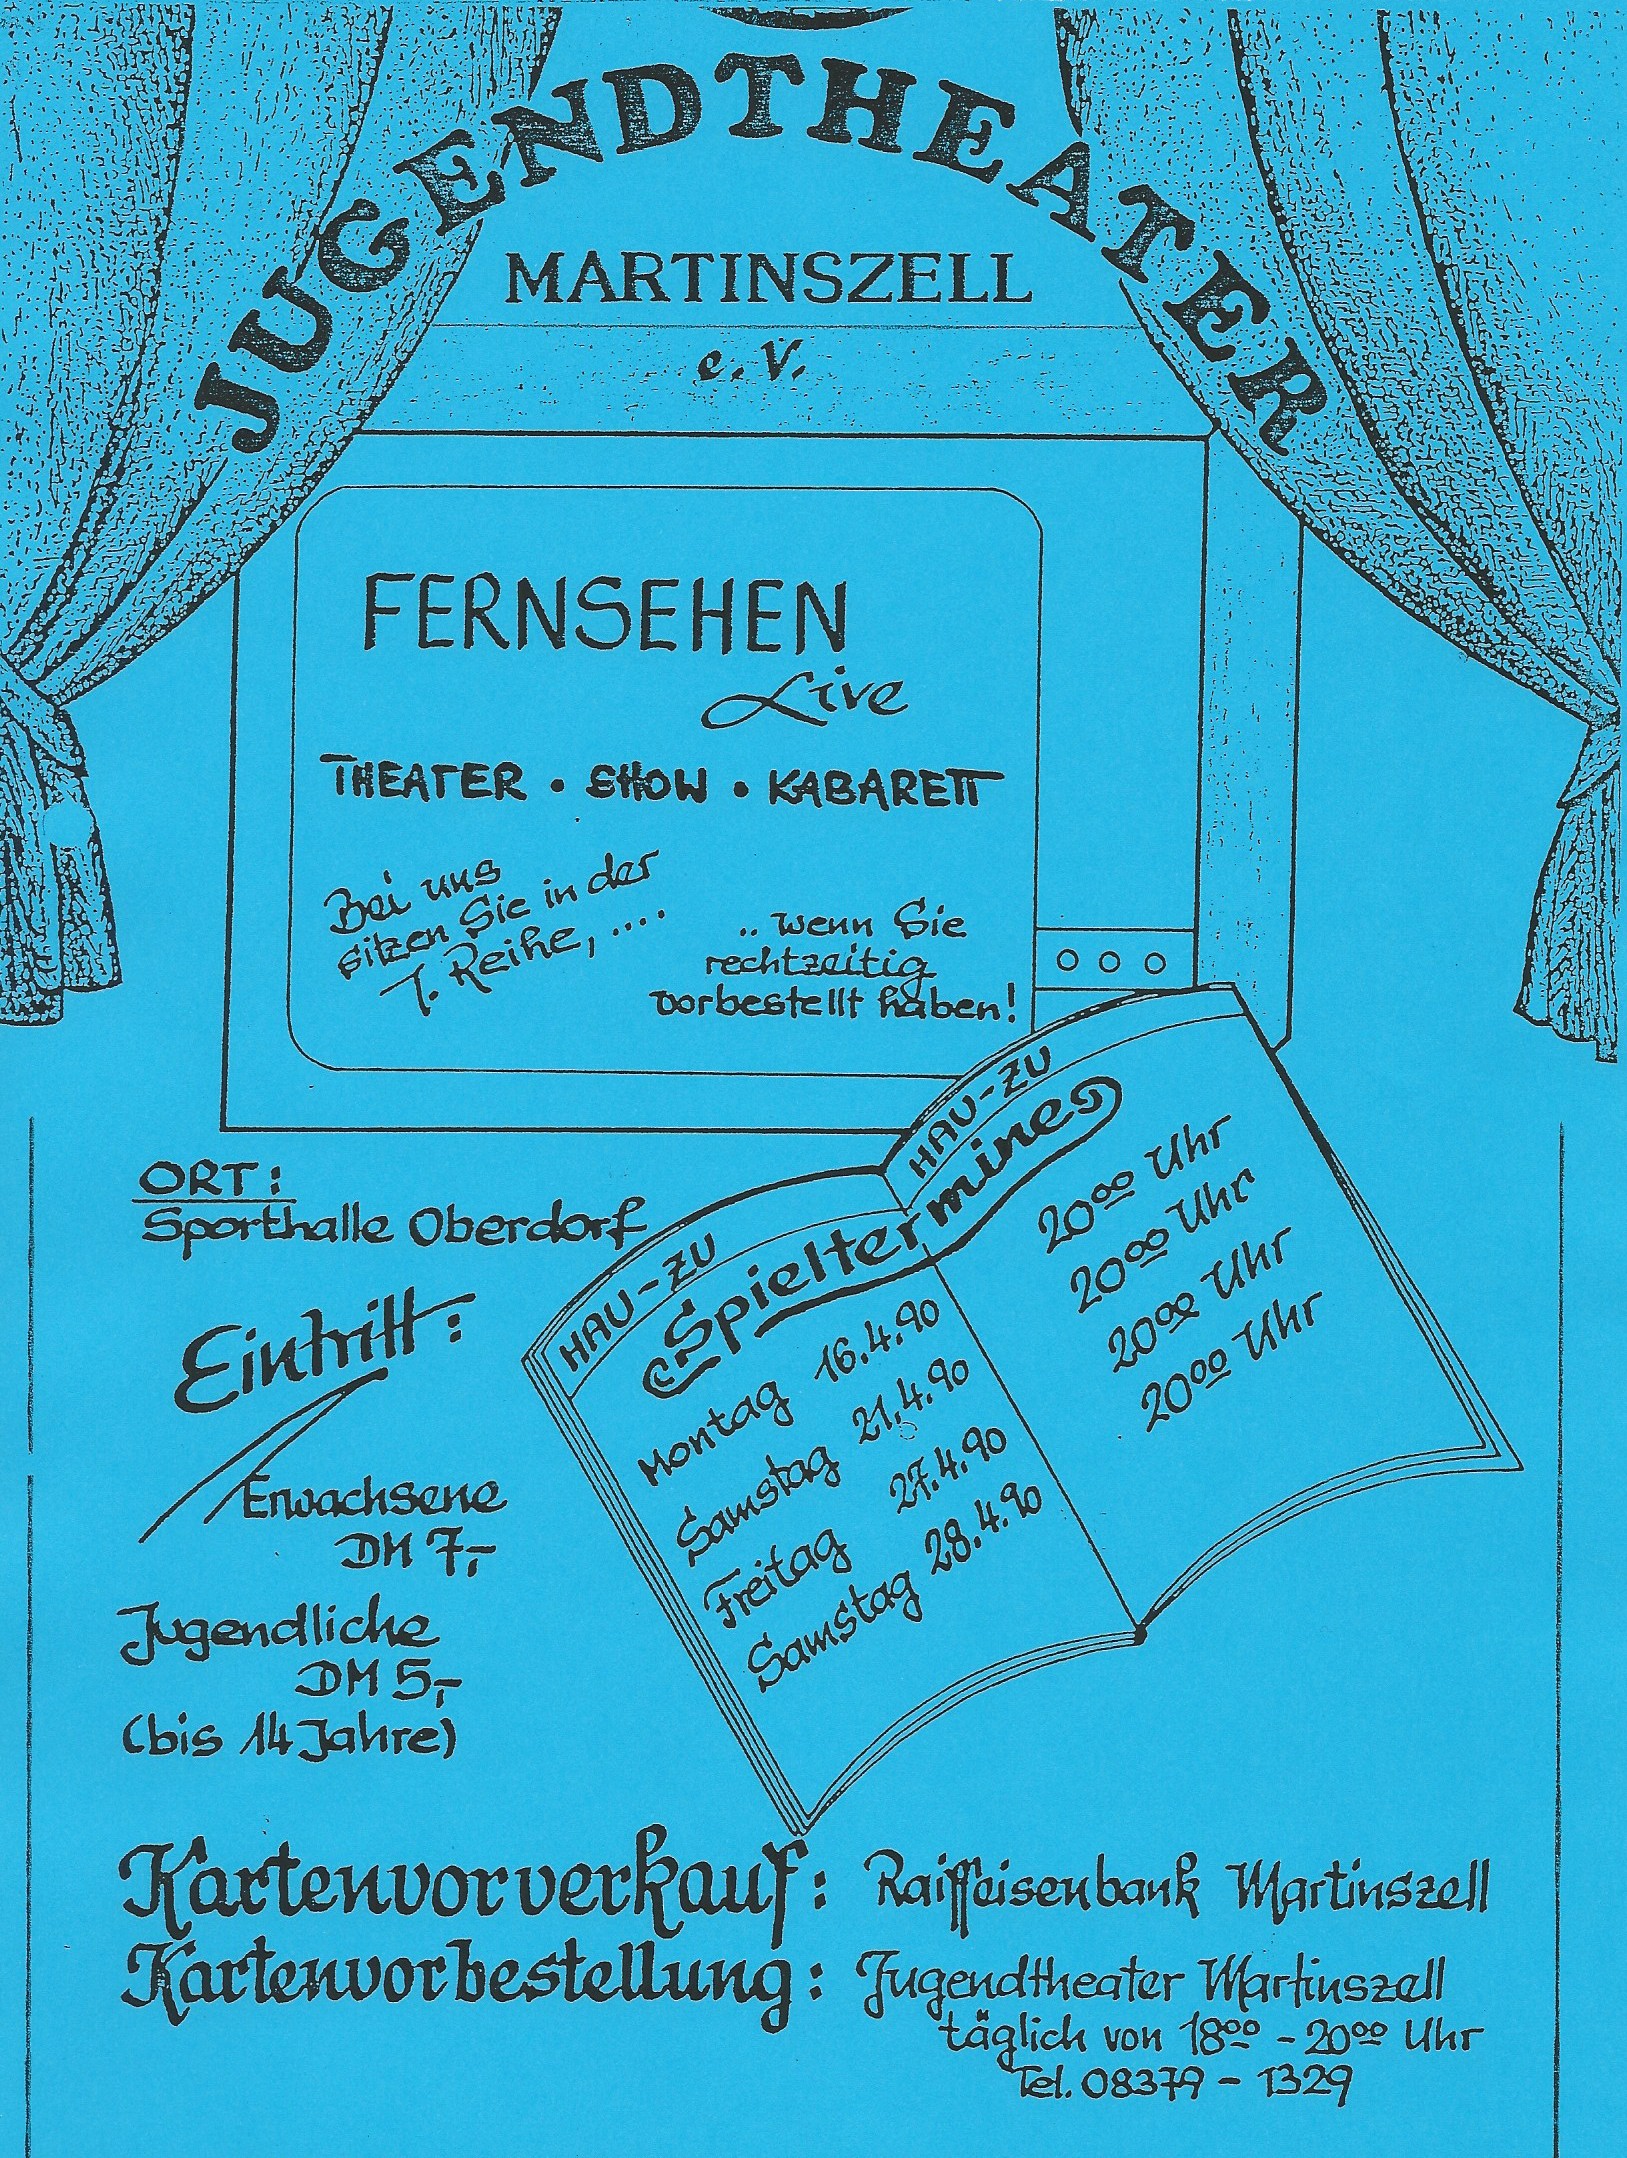 JUGENDTHEATER
MARTINSZELL
e.V.
FERNSEHEN
Live
THEATER · SHOW · KABARETT
Bei uns
sitzen Sie in der
1. Reihe, ...
.. wenn Sie
rechtzeitig
vorbestellt haben!
ORT:
Sporthalle Oberdorf
Eintritt:
Erwachsene
DM 7,-
Jugendliche
DM 5,-
(bis 14 Jahre)
HAU-ZU
HAU-ZU
Spieltermine
Montag 16.4.90 20⁰⁰ Uhr
Samstag 21.4.90 20⁰⁰ Uhr
Freitag 27.4.90 20⁰⁰ Uhr
Samstag 28.4.90 20⁰⁰ Uhr
Kartenvorverkauf: Raiffeisenbank Martinszell
Kartenvorbestellung: Jugendtheater Martinszell
täglich von 18⁰⁰ - 20⁰⁰ Uhr
Tel. 08379 - 1329